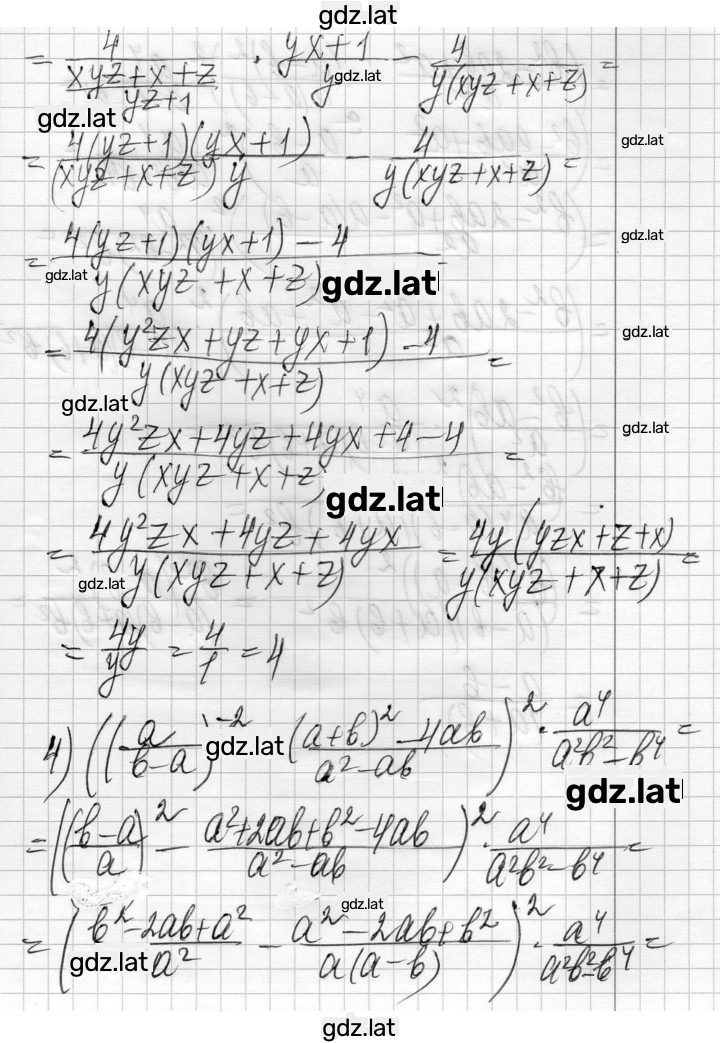 gdz.lat
= 4/((xyz+x+z)/(yz+1)) · (yx+1)/y - 4/(y(xyz+x+z)) =
gdz.lat
gdz.lat
= 4(yz+1)(yx+1)/((xyz+x+z)y) - 4/(y(xyz+x+z)) =
gdz.lat
= (4(yz+1)(yx+1) - 4)/(y(xyz+x+z))
gdz.lat
gdz.lat
gdz.lat
= (4(y²zx+yz+yx+1) - 4)/(y(xyz+x+z)) =
gdz.lat
gdz.lat
= (4y²zx+4yz+4yx+4-4)/(y(xyz+x+z) =
gdz.lat
gdz.lat
= (4y²zx+4yz+4yx)/(y(xyz+x+z)) = 4y(yzx+z+x)/(y(xyz+x+z)) =
gdz.lat
= 4y/y = 4/1 = 4
4) ((a/(b-a))⁻² ((a+b)²-4ab)/(a²-ab))² · a⁴/(a²b²-b⁴) =
gdz.lat
gdz.lat
= (((b-a)/a)² - (a²+2ab+b²-4ab)/(a²-ab))² · a⁴/(a²b²-b⁴) =
gdz.lat
= ((b²-2ab+a²)/a² - (a²-2ab+b²)/(a(a-b)))² · a⁴/(a²b²-b⁴) =
gdz.lat
gdz.lat